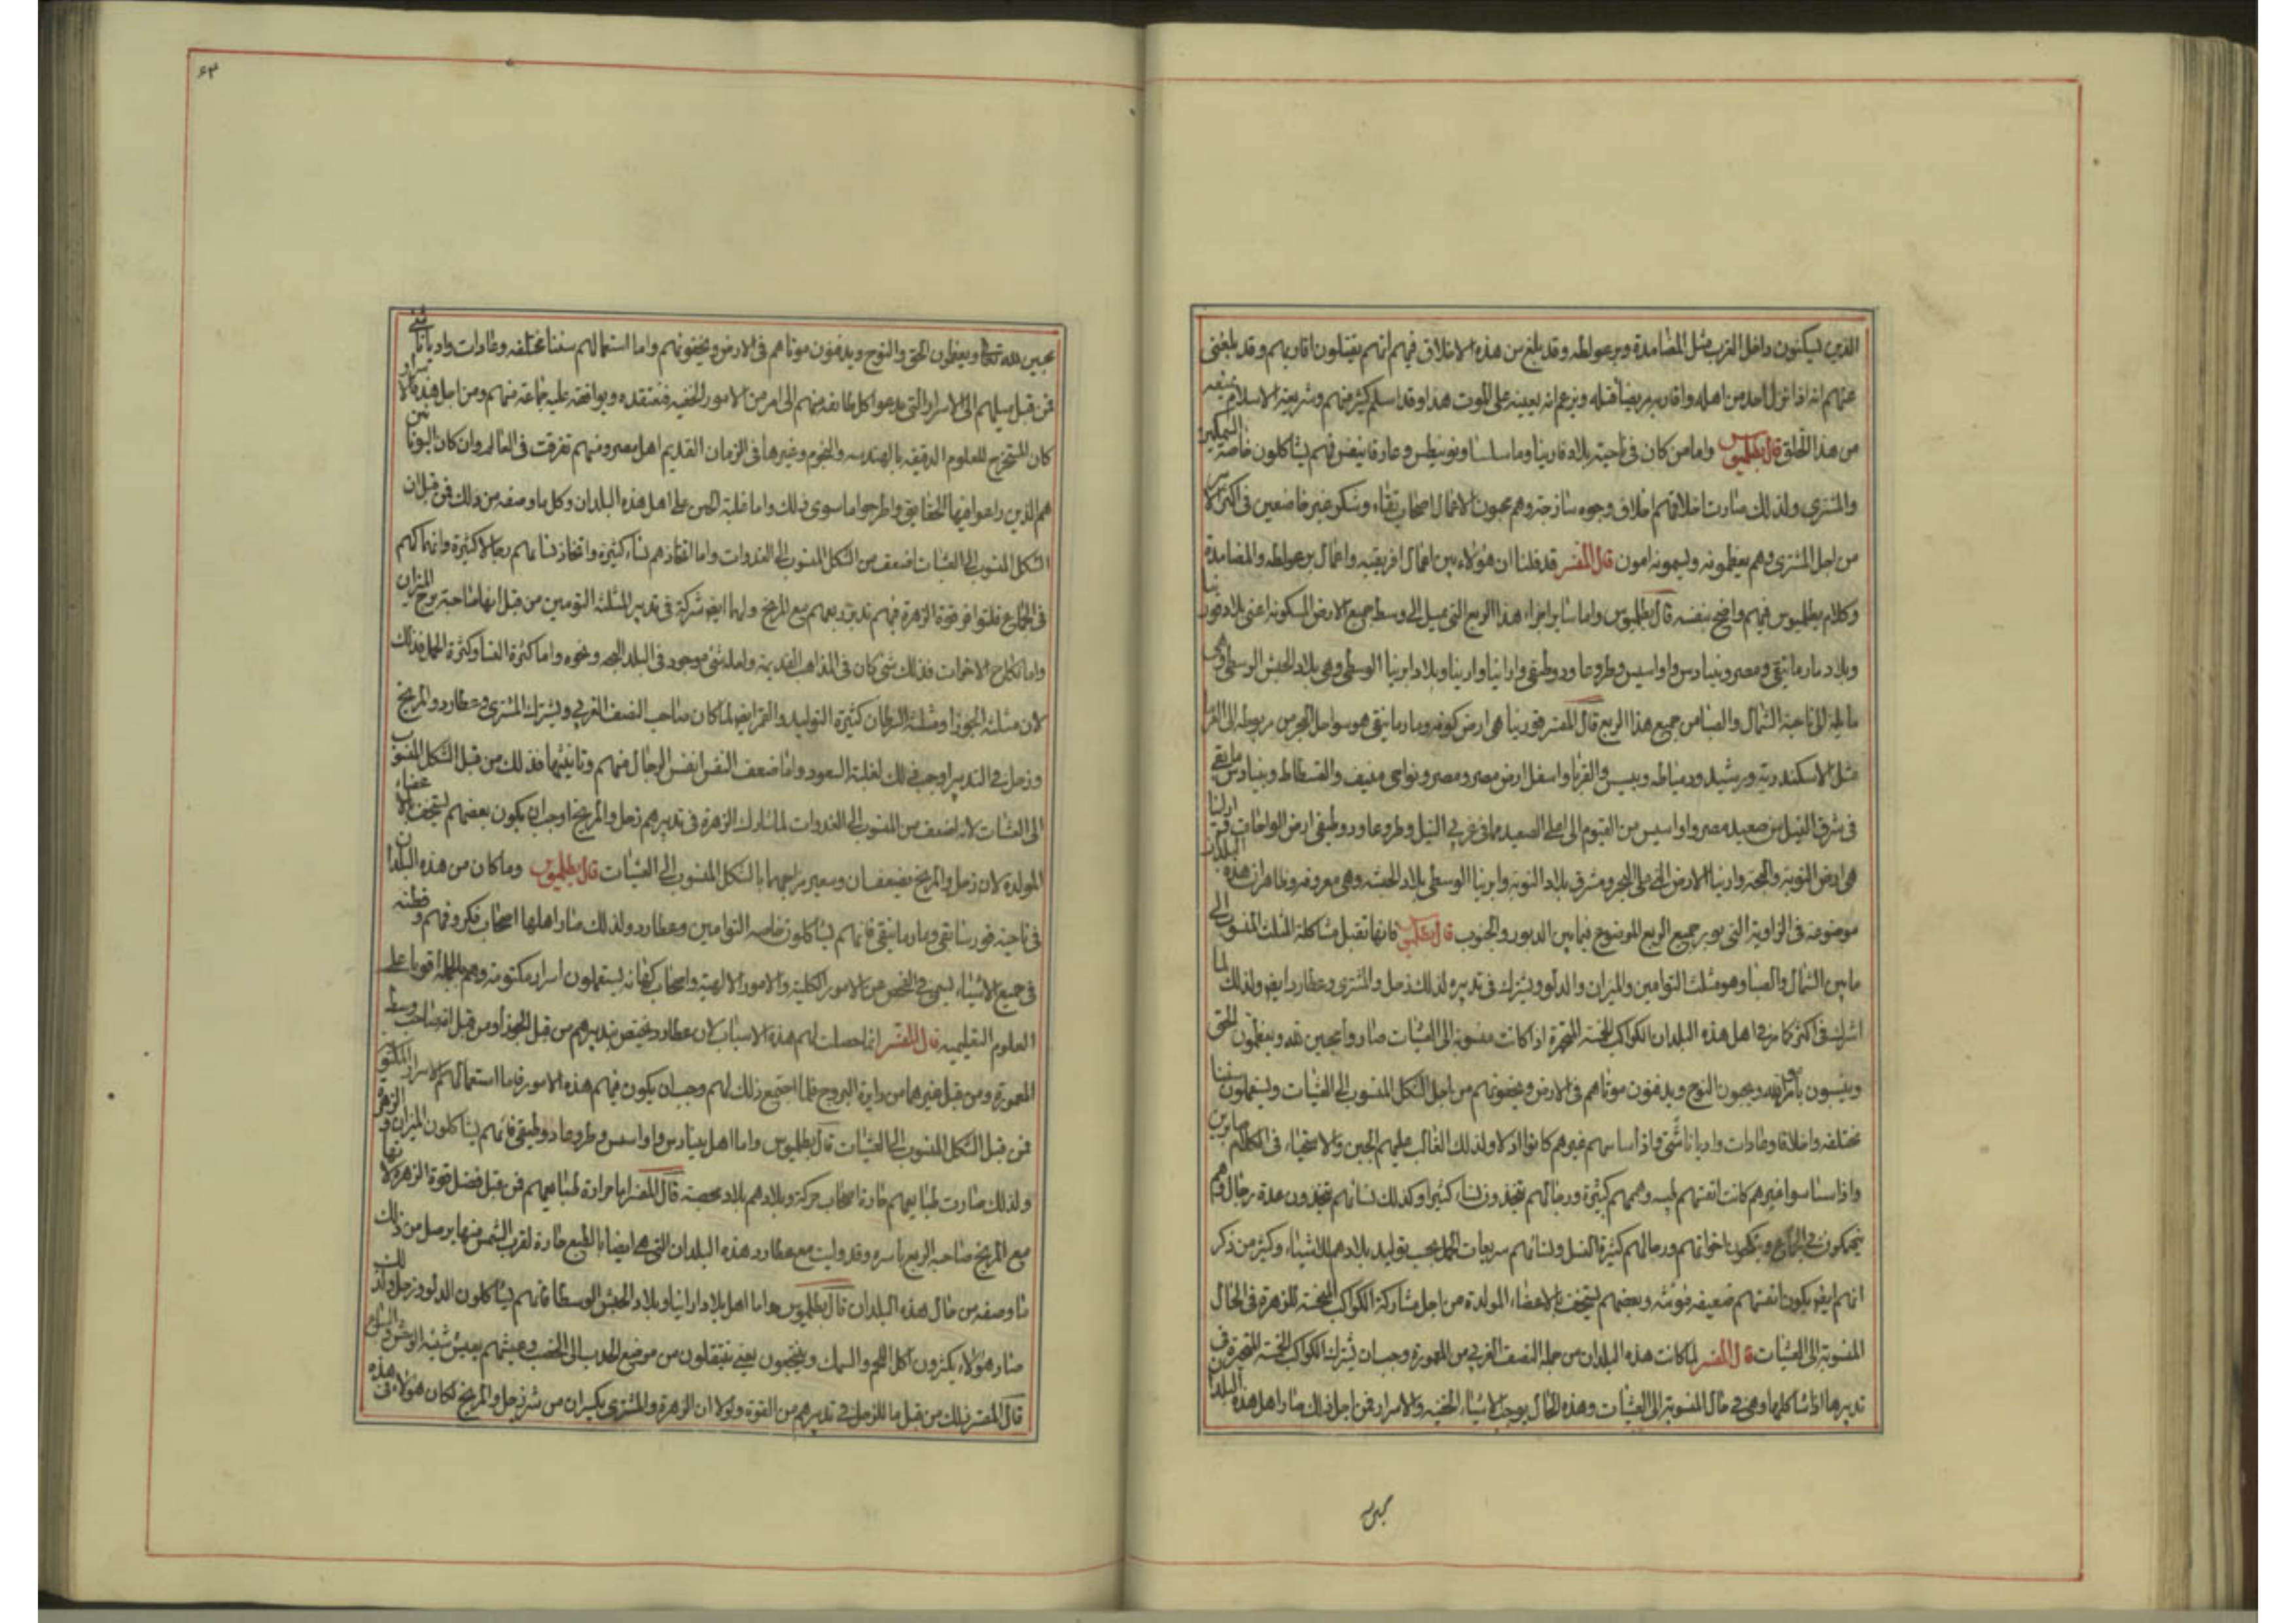 الذين يسكنون داخل الغرب مثل المصامدة وبرعواطه وقد بلغ من هذه الاخلاق فيهم انهم يقتلون اقاربهم وقد بلغنى
عنهم انه اذا نزل باحد من اهله واقاربه مرض قتله ويزعم انه يعينه على الموت هذا وقد اسلم كثير منهم وشريعة الاسلام تمنعه
من هذا الخلق قال بطلميوس واما من كان فى ناحية بلاد فاذينا وماساسا ونوبيطس فهم يشاكلون خاصة السمكتين
والمشترى ولذلك صارت اخلاقهم اخلاق وجوه ساذجة وهم محبون الاعمال اصحاب نقاء وشكو غير خاضعين فى اكثر الامر
من اجل المشترى وهم يعظمونه ويسمونه امون قال المفسر قد قلنا ان هؤلاء بين اعمال افريقيه واعمال برعواطه والمصامدة
وكلام بطلميوس فيهم واضح بنفسه قال بطلميوس واما ساير اجزاء هذا الربع التى تميل الى وسط جميع الارض المسكونه اعنى بلاد قورنيا
وبلاد مارماينقى ومصر وبنيادس واواسيس وطروعاودوطيقى وارابيا وازانيا وبلاد ابرنيا الوسطى وهى بلاد الحبش الوسطى وهى
مايلة الى ناحية الشمال والصبا من جميع هذا الربع قال المفسر قورنيا هى ارض كوفه ومارماينقى هو سواحل البحر من مربوطه الى الفرما
مثل الاسكندرية ورشيد ودمياط وتنيس والفرما واسفل ارض مصر ومصر ونواحى منيف والفسطاط وبنيادس ما بقى
فى شرقى النيل من صعيد مصر واواسيس من الفيوم الى اعلى الصعيد مما فى غربى النيل وطروعاودوطيقى ارض الواحات
هى ارض النوبة والبجه وازنيا الارض التى على البحر ومشرق بلاد النوبة وابرنيا الوسطى بلاد الحبشه وهى معروفه وظاهر ان هذه البلدان
موضوعة فى الزاوية التى يوتر جميع الربع الموضوع فيما بين الدبور والجنوب قال بطلميوس فانها تقبل مشاكلة المثلث المنسوب الى
ما بين الشمال والصبا وهو مثلث التوامين والميزان والدلو ويشترك فى تدبيره لذلك زحل والمشترى وعطارد ايضا ولذلك لما
اشترك فى اكثر تدبير اهل هذه البلدان الكواكب الخمسة المتحيرة اذا كانت منسوبة الى العشيات صاروا محبين لله ويعظمون الحق
وينسبون بامر الله ويحبون النوح ويدفنون موتاهم فى الارض ويخفونهم من اجل الشكل المنسوب الى العشيات ويستعملون سننا
مختلفه واخلاقا وعادات واديانا شتى واذا ساسهم غيرهم كانوا اذلا ولذلك الغالب عليهم الجبن والاستحياء فى الكلام صابرين
واذا ساسوا غيرهم كانت انفسهم طيبه وهممهم كبيرة ورجالهم يتخذون نساء كثيرا وكذلك نسائهم يتخذون عدة رجال وهم
ينهمكون فى الجماع وينكحون اخواتهم ورجالهم كثيرة النسل ونسائهم سريعات الحمل بحسب توليد بلادهم للاشياء وكثير من ذكر
انهم ايضا يكون انفسهم ضعيفه مونثه وبعضهم يستخف بالاعضاء المولدة من اجل مشاركة الكواكب النحسة للزهرة فى الحال
المنسوبة الى العشيات قال المفسر لما كانت هذه البلدان من جملة النصف الغربى من المعمورة وجب ان تشترك الكواكب الخمسة المتحيرة فى
تدبيرها اذا شاكلها وهى فى حال المنسوبة الى العشيات وهذه الحال يوجب الاشياء الخفيه والاسرار فمن اجل ذلك صار اهل هذه البلدان
۶۳
محبين لله تعالى ويعظمون الحق والنوح ويدفنون موتاهم فى الارض ويخفونهم واما استعمالهم سننا مختلفه وعادات واديانا شتى
فمن قبل ميلهم الى الاسرار والتى يدعوا كل طايفه منهم الى امر من الامور الخفيه فتعتقده ويوافقه عليه جماعة منهم ومن اجل هذه الاسرار
كان المستخرج للعلوم الدقيقه بالهندسه والنجوم وغيرها فى الزمان القديم اهل مصر ومنهم تفرقت فى العالم وان كان اليونانيين
هم الذين راعوا فيها الحقايق واطرحوا ما سوى ذلك واما غلبة الجبن على اهل هذه البلدان وكل ما وصفه من ذلك فمن قبل ان
الشكل المنسوب الى العشيات اضعف من الشكل المنسوب الى الغدوات واما اتخاذهم نساء كثيرة واتخاذ نسائهم رجالا كثيرة وانهماكهم
فى الجماع فلتوافر قوة الزهرة فيهم تدبر ربعهم مع المريخ ولها ايضا شركة فى تدبير المثلثه التومين من قبل انها صاحبة برج الميزان
واما نكاح الاخوات فذلك شى كان فى المذاهب القديمة وله شى موجود فى البلد البجه ونحوه واما كثرة النسل وكثرة الحمل فذلك
لان مثلثة الجوزا ومثلثة السرطان كثيرة التوليد والقمر ايضا لما كان صاحب النصف الغربى ويشترك المشترى وعطارد والمريخ
وزحل فى التدبير اوجب ذلك لغلبة السعود واما ضعف النفس انفس الرجال منهم وتانيثها فذلك من قبل الشكل المنسوب
الى العشيات لانه اضعف من المنسوب الى الغدوات لما شارك الزهرة فى تدبيرهم زحل والمريخ اوجب ان يكون بعضهم يستخف بالاعضاء
المولده لان زحل والمريخ يضعفان ويغير مزاجهما بالشكل المنسوب الى العشيات قال بطلميوس وما كان من هذه البلدان
فى ناحية قورنياقى ومارماينقى فانهم يشاكلون خاصه التوامين وعطارد ولذلك صار اهلها اصحاب فكر وفهم وفطنه
فى جميع الاشياء لسيما فى الفحص عن الامور الكلية والامور الالهية واصحاب كهانه يستعملون اسرار مكتومة وهم بالجمله اقويا على
العلوم التعليميه قال المفسر انما حصلت لهم هذه الاسباب لان عطارد يختص بتدبيرهم من قبل الجوزا ومن قبل انه صاحب وسط
المعمورة ومن قبل غيرهما من دايرة البروج فلما اجتمع ذلك لهم وجب ان يكون فيهم هذه الامور فاما استعمالهم الاسرار المكتومة
فمن قبل الشكل المنسوب الى العشيات قال بطلميوس واما اهل بنيادس واواسس وطروعادوطيقى فانهم يشاكلون الميزان والزهرة
ولذلك صارت طبايعهم حارة اصحاب حركة وبلادهم بلاد مخصبة قال المفسر اما حرارة طبايعهم فمن قبل فضل قوة الزهرة لانها
مع المريخ صاحبة الربع باسره وقد وليت مع عطارد هذه البلدان التى هى ايضا بالطبع حارة لقرب الشمس منها يحصل من ذلك
ما وصفه من حال هذه البلدان قال بطلميوس واما اهل بلاد ارابيا وبلاد الحبش الوسطا فانهم يشاكلون الدلو وزحل ولذلك
صار هؤلاء يكثرون اكل اللحم والسمك وينتجعون يعنى ينتقلون من موضع الجدب الى الخصب وعيشهم يعيش شبه الوحوش والسباع
قال المفسر ذلك من قبل ما للزحل فى تدبيرهم من القوة ولولا ان الزهرة والمشترى يكسران من شر زحل والمريخ لكان هؤلاء فى هذه